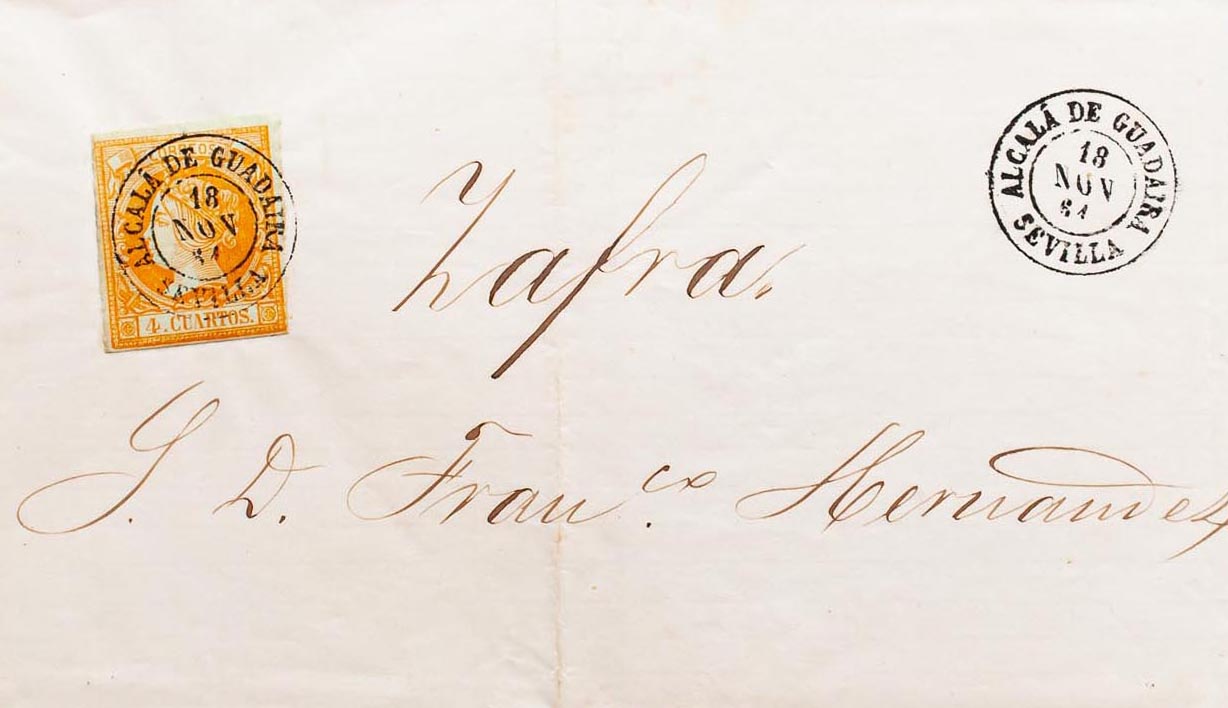 CORREOS
ALCALÁ DE GUADAIRA
18
NOV
61
SEVILLA
4. CUARTOS.
ALCALÁ DE GUADAIRA
18
NOV
61
SEVILLA
Zafra.
S. D. Fran.co Hernandez